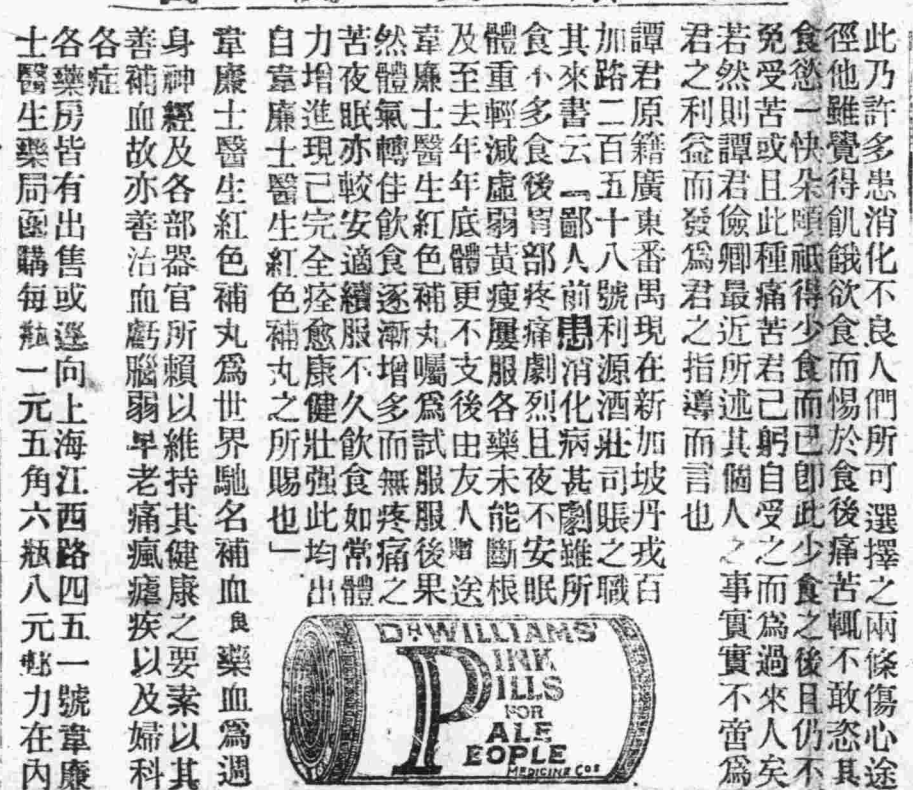 此乃許多患消化不良人們所可選擇之兩條傷心途
徑他雖覺得飢餓欲食而惕於食後痛苦輒不敢恣其
食慾一快朵頤祇得少食而已卽此少食之後且仍不
免受苦或且此種痛苦君已躬自受之而爲過來人矣
若然則譚君儉卿最近所述其個人之事實實不啻爲
君之利益而發爲君之指導而言也
譚君原籍廣東番禺現在新加坡丹戎百
加路二百五十八號利源酒莊司賬之職
其來書云「鄙人前患消化病甚劇雖所
食不多食後胃部疼痛劇烈且夜不安眠
體重輕減虛弱黃瘦屢服各藥未能斷根
及至去年年底體更不支後由友人贈送
韋廉士醫生紅色補丸囑爲試服服後果
然體氣轉佳飲食逐漸增多而無疼痛之
苦夜眠亦較安適續服不久飲食如常體
力增進現已完全痊愈康健壯强此均出
自韋廉士醫生紅色補丸之所賜也」
韋廉士醫生紅色補丸爲世界馳名補血良藥血爲週
身神經及各部器官所賴以維持其健康之要素以其
善補血故亦善治血虧腦弱早老痛瘋瘧疾以及婦科
各症
各藥房皆有出售或逕向上海江西路四五一號韋廉
士醫生藥局函購每瓶一元五角六瓶八元郵力在內
DR WILLIAMS'
PINK
PILLS
FOR
PALE
PEOPLE
MEDICINE Cos